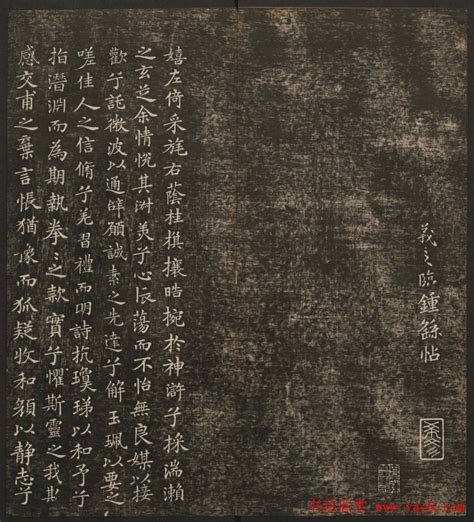 羲之臨鍾繇帖
嬉左倚采旄右蔭桂棋攘皓捥於神滸兮採湍瀨
之玄芝余情悅其淑美兮心振蕩而不怡無良媒以接
歡兮託微波以通辭願誠素之先達兮解玉珮以要之
嗟佳人之信脩兮羌習禮而明詩抗瓊珶以和予兮
指潛淵而為期執拳〻之款實兮懼斯靈之我欺
感交甫之棄言悵猶豫而狐疑收和顏以静志兮
书法欣赏 www.yac8.com